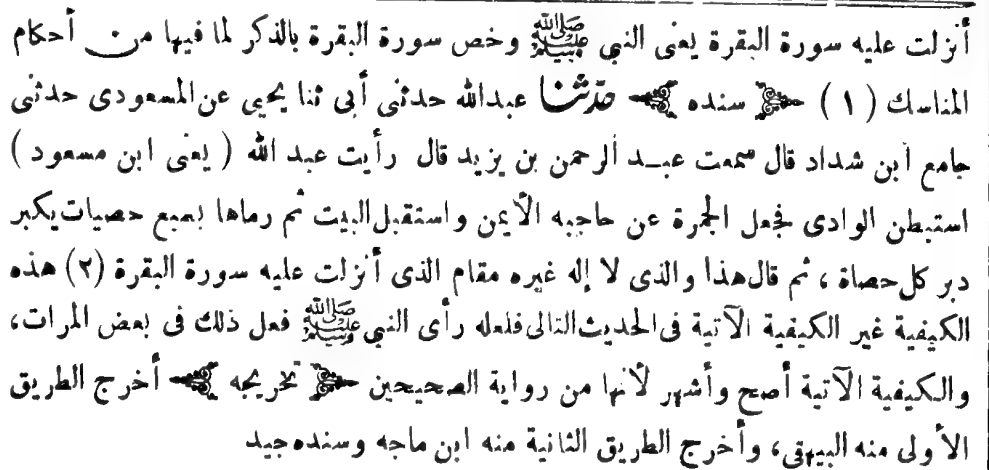 أنزلت عليه سورة البقرة يعنى النبى ﷺ وخص سورة البقرة بالذكر لما فيها من أحكام
المناسك (١) ﴿ سنده ﴾ حدثنا عبدالله حدثنى أبى ثنا يحيى عن المسعودى حدثنى
جامع ابن شداد قال سمعت عبد الرحمن بن يزيد قال رأيت عبد الله ( يعنى ابن مسعود )
استبطن الوادى فجعل الجمرة عن حاجبه الأيمن واستقبل البيت ثم رماها بسبع حصيات يكبر
دبر كل حصاة ، ثم قال هذا والذى لا إله غيره مقام الذى أنزلت عليه سورة البقرة (٢) هذه
الكيفية غير الكيفية الآتية فى الحديث التالى فلعله رأى النبى ﷺ فعل ذلك فى بعض المرات،
والكيفية الآتية أصح وأشهر لأنها من رواية الصحيحين ﴿ تخريجه ﴾ أخرج الطريق
الأولى منه البيهقى، وأخرج الطريق الثانية منه ابن ماجه وسنده جيد